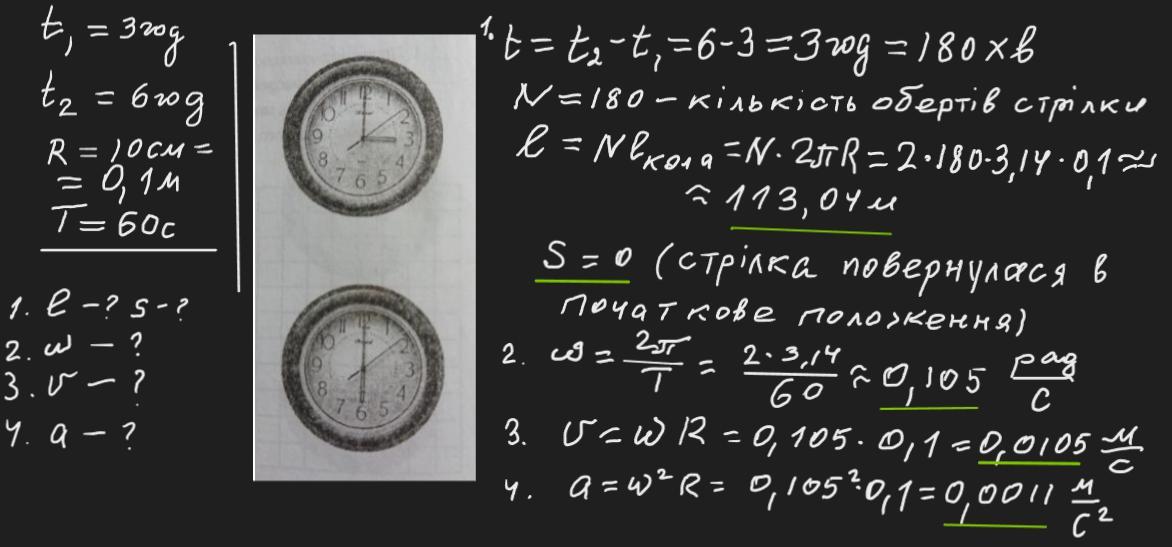 t₁ = 3год
t₂ = 6год
R = 10см =
= 0,1м
T = 60с
1. ℓ – ? s – ?
2. ω – ?
3. v – ?
4. a – ?
12
11
10
2
9
3
8
4
7
6
5
12
11
10
2
9
3
8
4
7
6
5
1. t = t₂ - t₁ = 6 - 3 = 3год = 180 хв
N = 180 – кількість обертів стрілки
ℓ = Nℓкола = N · 2πR = 2 · 180 · 3,14 · 0,1 ≈
≈ 113,04м
S = 0 (стрілка повернулася в
початкове положення)
2. ω = 2π/T = 2·3,14/60 ≈ 0,105 рад/с
3. v = ωR = 0,105 · 0,1 = 0,0105 м/с
4. a = ω²R = 0,105² · 0,1 = 0,0011 м/с²